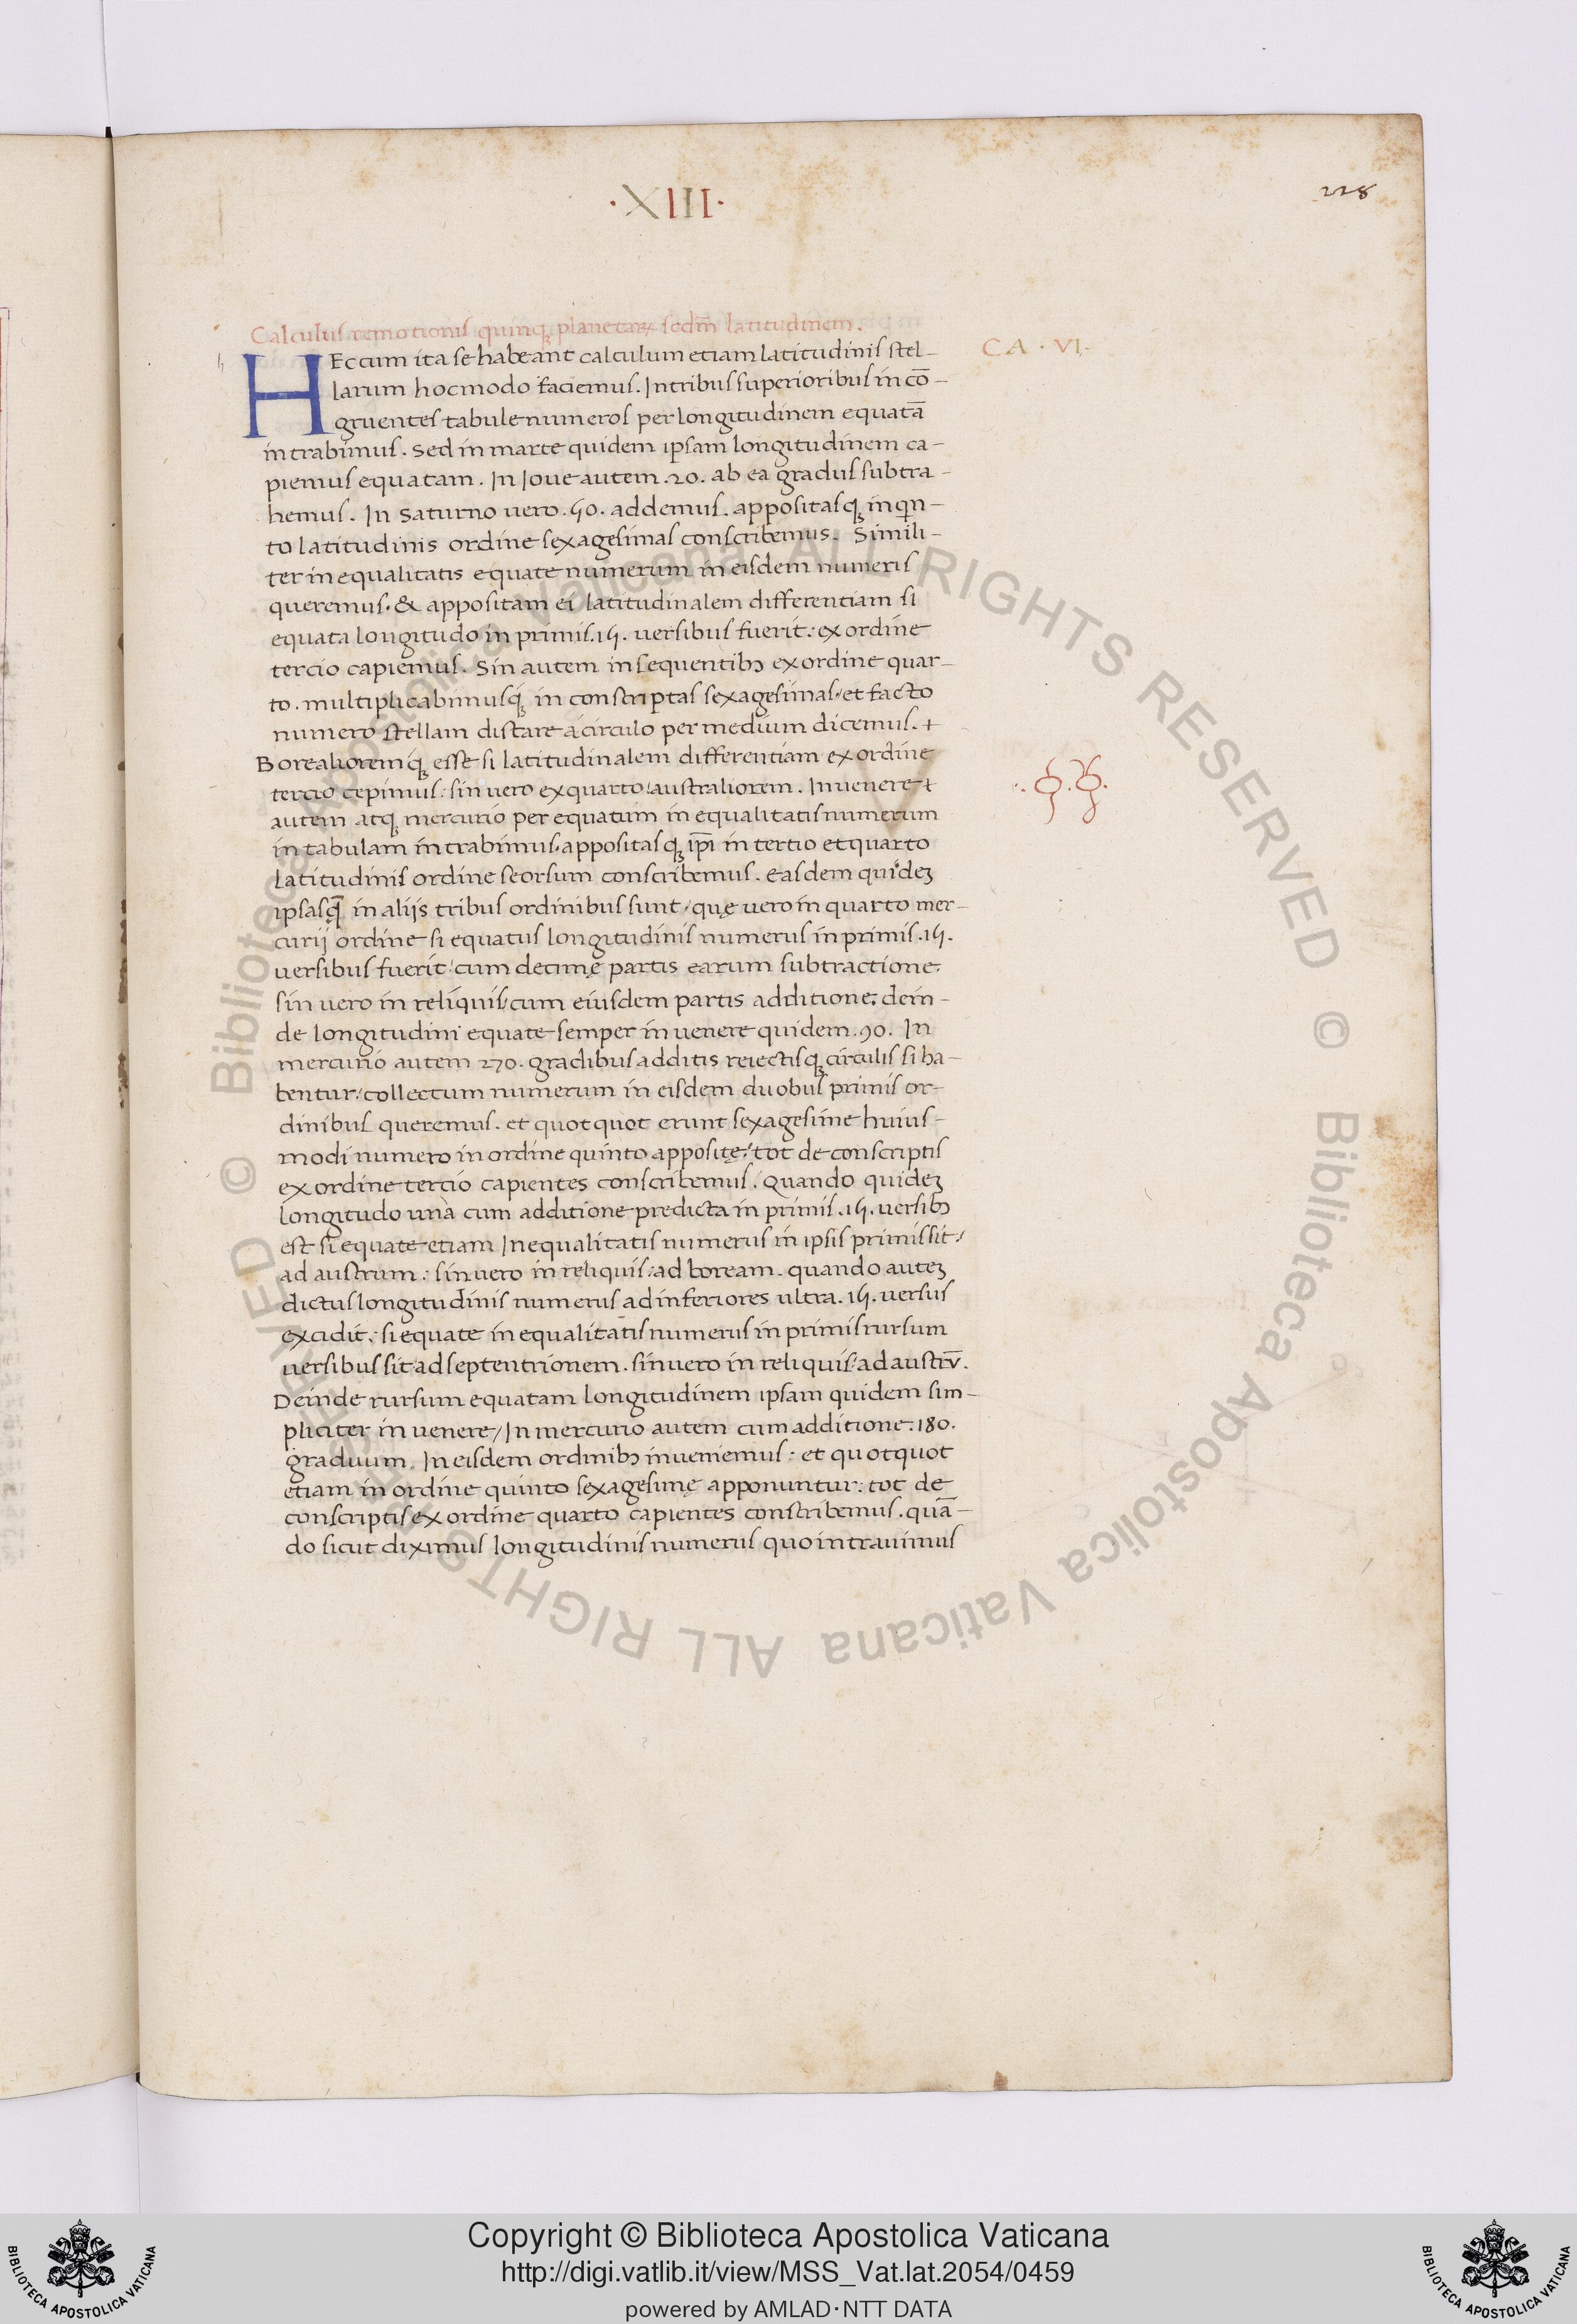 ·XIII·
228
Calculus remotionis quinqꝫ planetaꝝ sedm̄ latitudinem.
CA · VI.
HEc cum ita se habeant calculum etiam latitudinis stel-
larum hoc modo faciemus. In tribus superioribus in cō-
gruentes tabule numeros per longitudinem equatā
intrabimus. Sed in marte quidem ipsam longitudinem ca-
piemus equatam. In Ioue autem .20. ab ea gradus subtra-
hemus. In Saturno vero .50. addemus. appositasqꝫ in qn-
to latitudinis ordine sexagesimas conscribemus. Simili-
ter inequalitatis equate numerum in eisdem numeris
queremus. & appositam ei latitudinalem differentiam si
equata longitudo in primis .15. versibus fuerit: ex ordine
tercio capiemus. Sin autem in sequentibꝫ ex ordine quar-
to. multiplicabimusqꝫ in conscriptas sexagesimas, et facto
numero stellam distare a circulo per medium dicemus. +
Borealioremqꝫ esse si latitudinalem differentiam ex ordine
tercio cepimus: sin vero ex quarto australiorem. In venere +
autem atqꝫ mercurio per equatum inequalitatis numerum
☿. ♀.
in tabulam intrabimus. appositasqꝫ ip̄i in tertio et quarto
latitudinis ordine seorsum conscribemus. easdem quideꝫ
ipsasqꝫ in aliis tribus ordinibus sunt, quę vero in quarto mer-
curij ordine si equatus longitudinis numerus in primis .15.
versibus fuerit: cum decimę partis earum subtractione.
sin vero in reliquis, cum eiusdem partis additione. dein-
de longitudini equate semper in venere quidem .90. In
mercurio autem 270. gradibus additis reiectisqꝫ circulis si ha-
bentur, collectum numerum in eisdem duobus primis or-
dinibus queremus. et quotquot erunt sexagesime huius-
modi numero in ordine quinto appositę, tot de conscriptis
ex ordine tercio capientes conscribemus. Quando quideꝫ
longitudo unà cum additione predicta in primis .15. versibꝫ
est si equate etiam Inequalitatis numerus in ipsis primis sit,
ad austrum: sin vero in reliquis, ad boream. quando auteꝫ
dictus longitudinis numerus ad inferiores ultra .15. versus
excidit: si equate inequalitatis numerus in primis rursum
versibus sit ad septentrionem. sin vero in reliquis, ad austrū.
Deinde rursum equatam longitudinem ipsam quidem sim-
pliciter in venere, In mercurio autem cum additione .180.
graduum. In eisdem ordinibꝫ inueniemus: et quotquot
etiam in ordine quinto sexagesimę apponuntur: tot de
conscriptis ex ordine quarto capientes conscribemus. quā-
do sicut diximus longitudinis numerus quo intrauimus
Copyright © Biblioteca Apostolica Vaticana
http://digi.vatlib.it/view/MSS_Vat.lat.2054/0459
powered by AMLAD·NTT DATA
BIBLIOTECA APOSTOLICA VATICANA
BIBLIOTECA APOSTOLICA VATICANA
© Biblioteca Apostolica Vaticana ALL RIGHTS RESERVED © Biblioteca Apostolica Vaticana ALL RIGHTS RESERVED